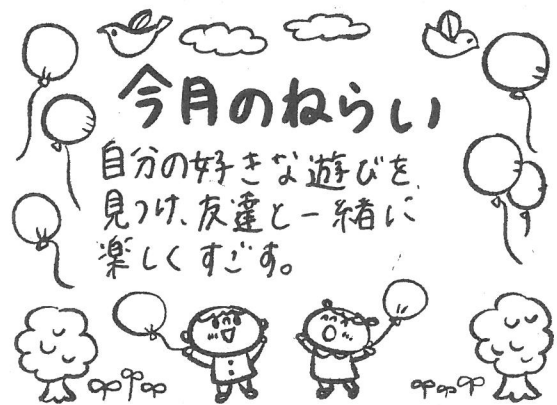 今月のねらい
自分の好きな遊びを
見つけ、友達と一緒に
楽しくすごす。